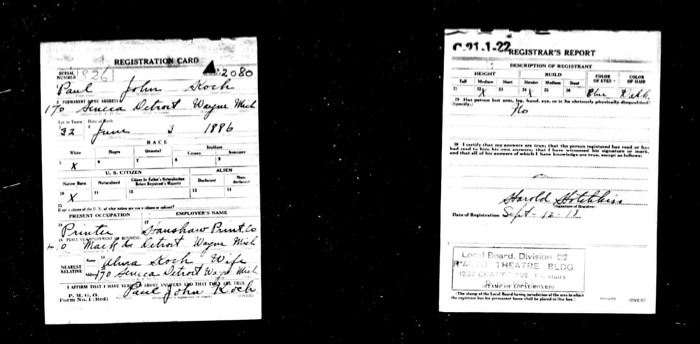 REGISTRATION CARD
SERIAL NUMBER 2080
Paul John Koch
2 PERMANENT HOME ADDRESS
170 Seneca Detroit Wayne Mich
Age in Years Date of Birth
32 June 3 1886
RACE
White Negro Oriental Indian
Citizen Noncitizen
5 6 7 8 9
X
U. S. CITIZEN ALIEN
Native Born Naturalized Citizen by Father's Naturalization Before Registrant's Majority Declarant Non-declarant
10 11 12 13 14
X
15
If not a citizen of the U. S., of what nation are you a citizen or subject?
PRESENT OCCUPATION EMPLOYER'S NAME
Printer Hanshaw Print Co
PLACE OF EMPLOYMENT OR BUSINESS
Mack Detroit Wayne Mich
NEAREST RELATIVE
Name Alma Koch Wife
Address 170 Seneca Detroit Wayne Mich
I AFFIRM THAT I HAVE VERIFIED ABOVE ANSWERS AND THAT THEY ARE TRUE
P. M. G. O.
Form No. 1 (Red) Paul John Koch
(OVER)
21-1-22 REGISTRAR'S REPORT
DESCRIPTION OF REGISTRANT
HEIGHT BUILD COLOR OF EYES COLOR OF HAIR
Tall Medium Short Slender Medium Stout
21 22 23 24 25 26 27 28
X X Blue
29 Has person lost arm, leg, hand, eye, or is he obviously physically disqualified?
(Specify.) No
30 I certify that my answers are true; that the person registered has read or has had read to him his own answers; that I have witnessed his signature or mark, and that all of his answers of which I have knowledge are true, except as follows:
Harold Hotchkiss
(Signature of Registrar)
Date of Registration Sept - 12 - 18
Local Board, Division 22
THEATRE BLDG.
(The stamp of the Local Board having jurisdiction of the area in which the registrant has his permanent home shall be placed in this box.)
(OVER)